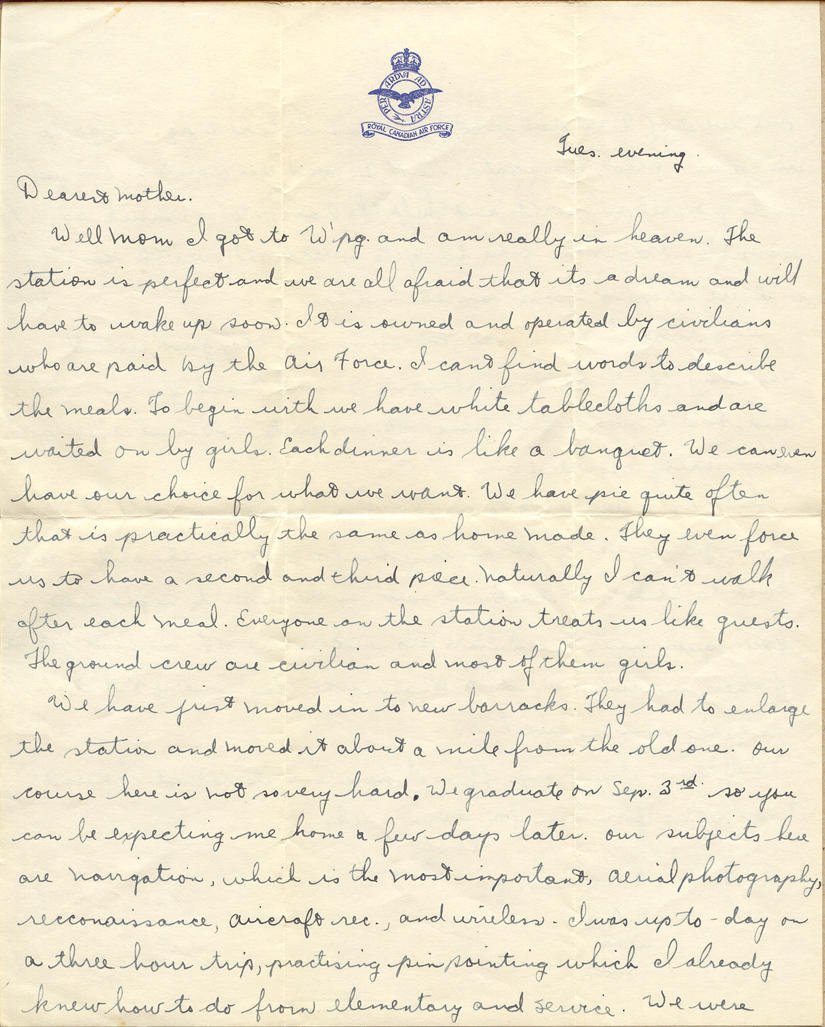 PER ARDVA AD ASTRA
ROYAL CANADIAN AIR FORCE
Tues. evening.
Dearest Mother.
Well Mom I got to W'pg. and am really in heaven. The
station is perfect and we are all afraid that its a dream and will
have to wake up soon. It is owned and operated by civilians
who are paid by the Air Force. I cant find words to describe
the meals. To begin with we have white tablecloths and are
waited on by girls. Each dinner is like a banquet. We can even
have our choice for what we want. We have pie quite often
that is practically the same as home made. They even force
us to have a second and third piece. Naturally I can't walk
after each meal. Everyone on the station treats us like guests.
The ground crew are civilian and most of them girls.
We have just moved in to new barracks. They had to enlarge
the station and moved it about a mile from the old one. Our
course here is not so very hard. We graduate on Sep. 3rd. so you
can be expecting me home a few days later. Our subjects here
are navigation, which is the most important, aerial photography,
recconaissance, aircraft rec., and wireless. I was up to-day on
a three hour trip, practising pin pointing which I already
knew how to do from elementary and service. We were